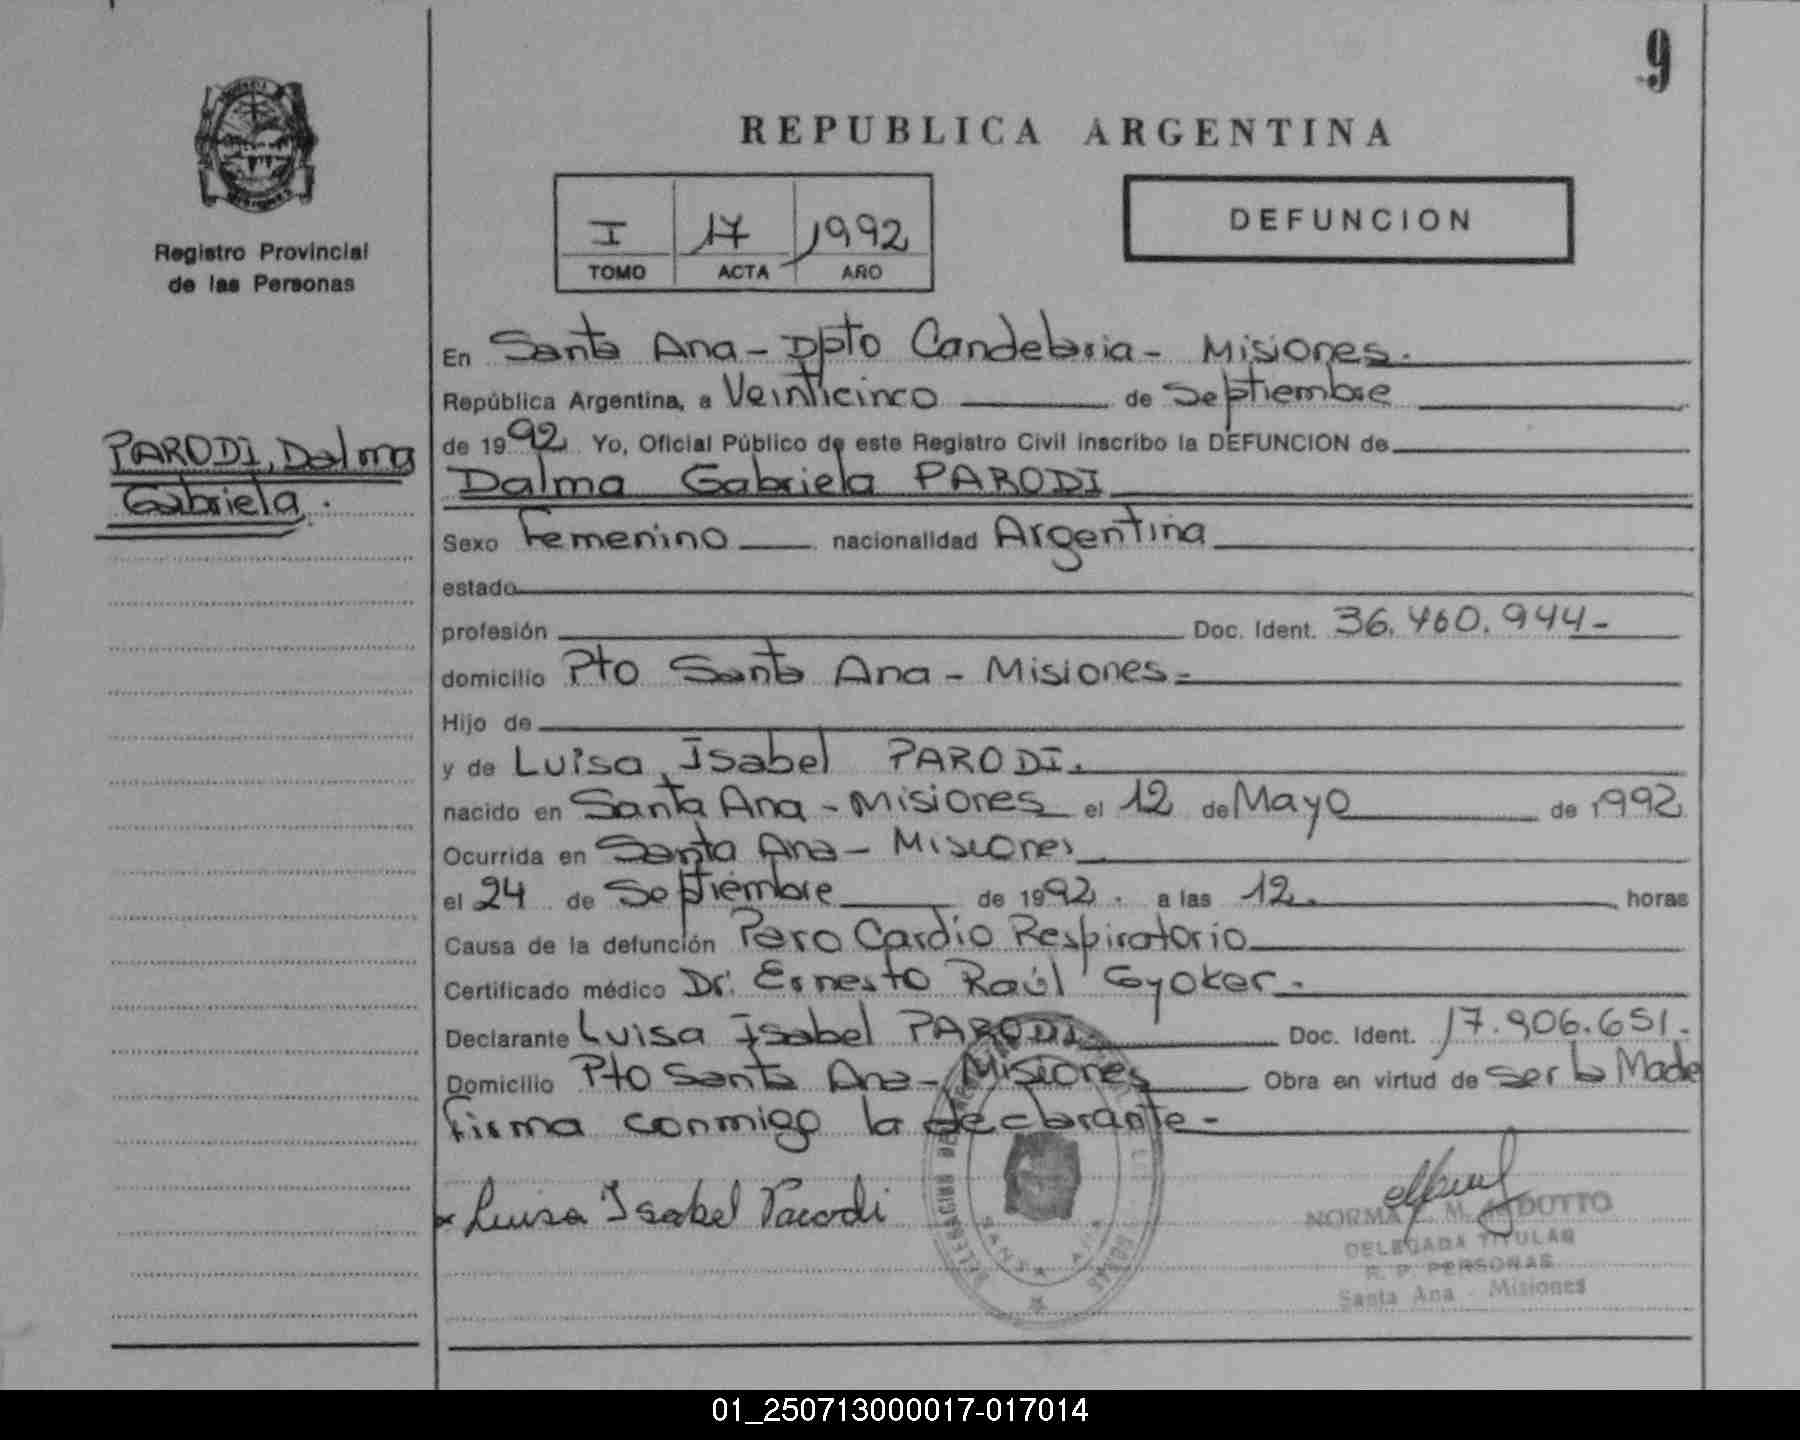 9
REPUBLICA ARGENTINA
Registro Provincial
de las Personas
I 17 1992
TOMO ACTA AÑO
DEFUNCION
PARODI, Dalma
Gabriela.
En Santa Ana - Dpto Candelaria - Misiones.
República Argentina, a Veinticinco de Septiembre
de 1992 Yo, Oficial Público de este Registro Civil inscribo la DEFUNCION de
Dalma Gabriela PARODI
Sexo Femenino nacionalidad Argentina
estado
profesión Doc. Ident. 36.460.944-
domicilio Pto Santa Ana - Misiones-
Hijo de
y de Luisa Isabel PARODI.
nacido en Santa Ana - Misiones el 12 de Mayo de 1992
Ocurrida en Santa Ana - Misiones
el 24 de Septiembre de 1992. a las 12. horas
Causa de la defunción Paro Cardio Respiratorio
Certificado médico Dr. Ernesto Raúl Gyoker-
Declarante Luisa Isabel PARODI Doc. Ident. 17.906.651.
Domicilio Pto Santa Ana - Misiones Obra en virtud de ser la Madre
Firma conmigo la declarante-
Luisa Isabel Parodi
SANTA ANA
NORMA M.
DELEGADA TITULAR
R. P. PERSONAS
Santa Ana - Misiones
01_250713000017-017014